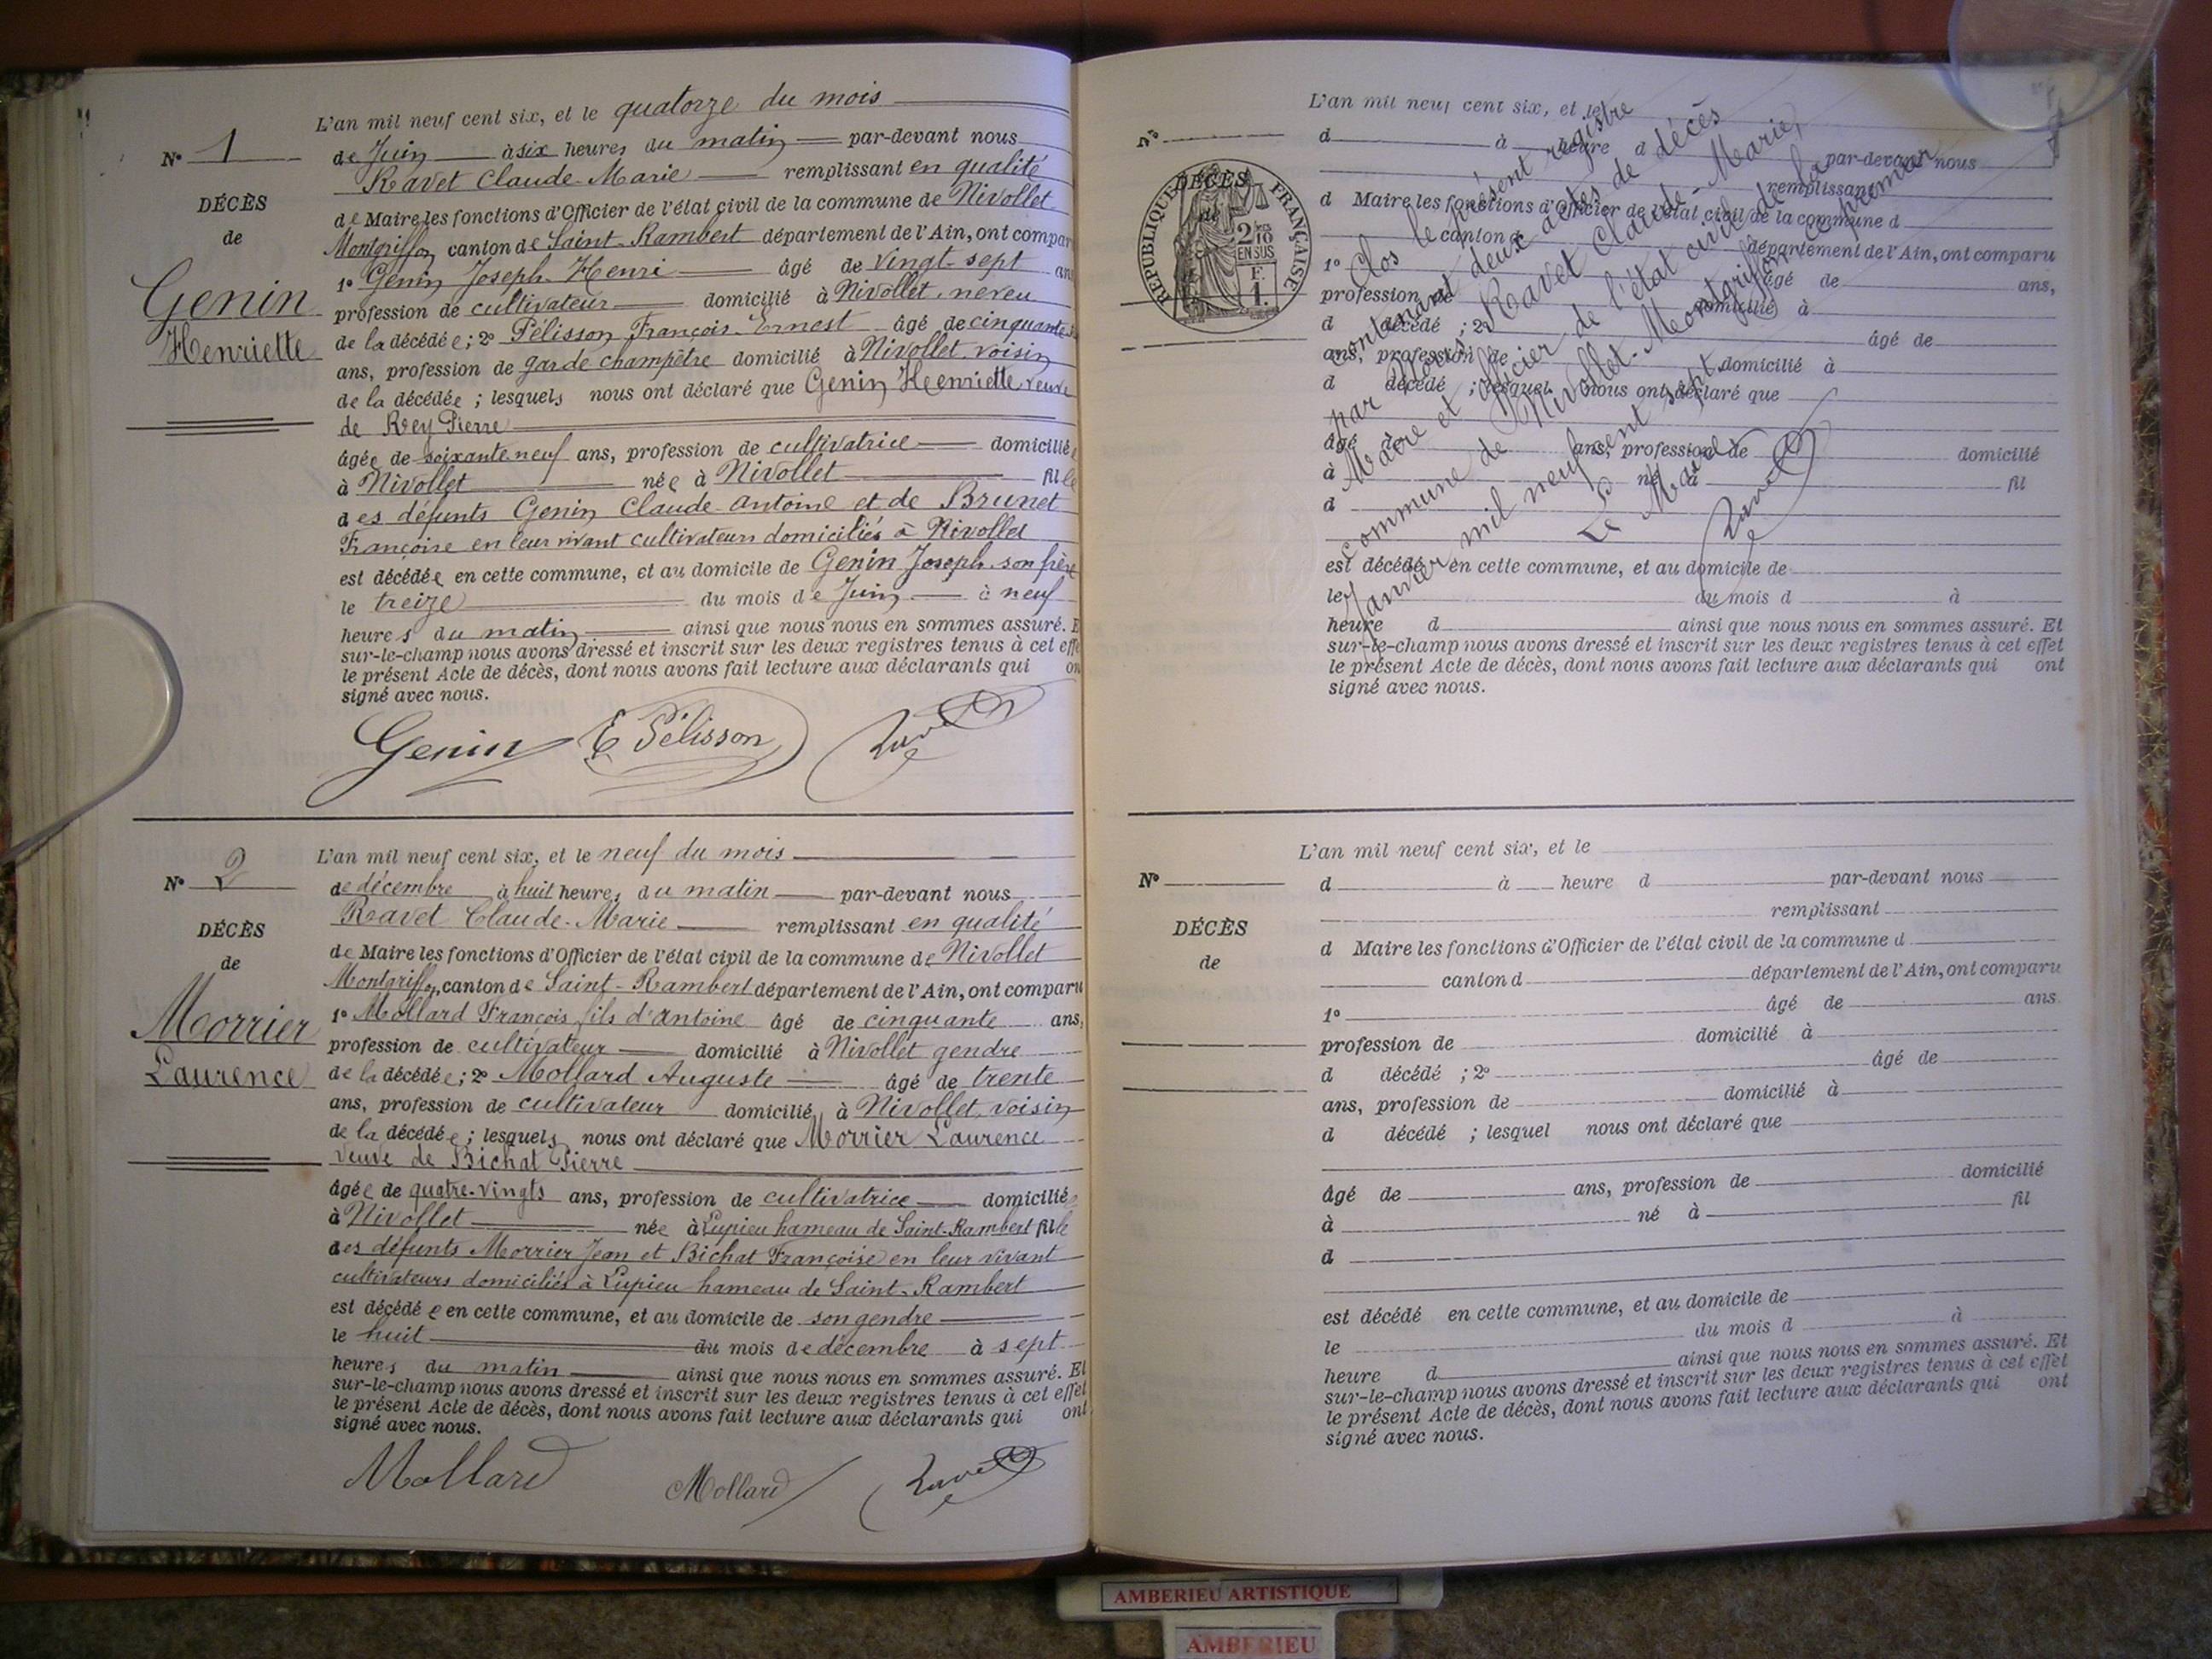 N° 1
DÉCÈS
de
Genin
Henriette
L'an mil neuf cent six, et le quatorze du mois
de Juin à six heures du matin par-devant nous
Ravet Claude-Marie remplissant en qualité
de Maire les fonctions d'Officier de l'état civil de la commune de Nivollet
Montgriffon canton de Saint-Rambert département de l'Ain, ont compar
1° Genin Joseph-Henri âgé de vingt-sept ans
profession de cultivateur domicilié à Nivollet, neveu
de la décédée; 2° Pélisson François-Ernest âgé de cinquante
ans, profession de garde champêtre domicilié à Nivollet, voisin
de la décédée ; lesquels nous ont déclaré que Genin Henriette veuve
de Rey Pierre
âgée de soixante neuf ans, profession de cultivatrice domiciliée
à Nivollet née à Nivollet fille
des défunts Genin Claude-Antoine et de Brunet
Françoise en leur vivant cultivateurs domiciliés à Nivollet
est décédée en cette commune, et au domicile de Genin Joseph son frère
le treize du mois de Juin à neuf
heures du matin ainsi que nous nous en sommes assuré. E
sur-le-champ nous avons dressé et inscrit sur les deux registres tenus à cet effe
le présent Acte de décès, dont nous avons fait lecture aux déclarants qui on
signé avec nous.
Genin E Pélisson Ravet
N° 2
DÉCÈS
de
Morrier
Laurence
L'an mil neuf cent six, et le neuf du mois
de décembre à huit heures du matin par-devant nous
Ravet Claude-Marie remplissant en qualité
de Maire les fonctions d'Officier de l'état civil de la commune de Nivollet
Montgriffon, canton de Saint-Rambert département de l'Ain, ont comparu
1° Mollard François fils d'Antoine âgé de cinquante ans,
profession de cultivateur domicilié à Nivollet gendre
de la décédée; 2° Mollard Auguste âgé de trente
ans, profession de cultivateur domicilié à Nivollet, voisin
de la décédée; lesquels nous ont déclaré que Morrier Laurence
veuve de Bichat Pierre
âgée de quatre-vingts ans, profession de cultivatrice domiciliée
à Nivollet née à Lupieu hameau de Saint-Rambert fille
des défunts Morrier Jean et Bichat Françoise en leur vivant
cultivateurs domiciliés à Lupieu hameau de Saint-Rambert
est décédée en cette commune, et au domicile de son gendre
le huit du mois de décembre à sept
heures du matin ainsi que nous nous en sommes assuré. Et
sur-le-champ nous avons dressé et inscrit sur les deux registres tenus à cet effet
le présent Acte de décès, dont nous avons fait lecture aux déclarants qui ont
signé avec nous.
Mollard Mollard Ravet
N°
DÉCÈS
de
RÉPUBLIQUE FRANÇAISE
2/10 EN SUS
F. 1.
L'an mil neuf cent six, et le
d à heure d par-devant nous
remplissant
d Maire les fonctions d'Officier de l'état civil de la commune d
canton d département de l'Ain, ont comparu
1° âgé de ans,
profession de domicilié à
d décédé ; 2° âgé de
ans, profession de domicilié à
d décédé ; lesquel nous ont déclaré que
âgé de ans, profession de domicilié
à né à fil
d
est décédé en cette commune, et au domicile de
le du mois d à
heure d ainsi que nous nous en sommes assuré. Et
sur-le-champ nous avons dressé et inscrit sur les deux registres tenus à cet effet
le présent Acte de décès, dont nous avons fait lecture aux déclarants qui ont
signé avec nous.
Clos le présent registre
contenant deux actes de décès
par Nous Ravet Claude-Marie,
Maire et officier de l'état civil de la
commune de Nivollet-Montgriffon ce premier
Janvier mil neuf cent sept.
Le Maire
Ravet
N°
DÉCÈS
de
L'an mil neuf cent six, et le
d à heure d par-devant nous
remplissant
d Maire les fonctions d'Officier de l'état civil de la commune d
canton d département de l'Ain, ont comparu
1° âgé de ans
profession de domicilié à
d décédé ; 2° âgé de
ans, profession de domicilié à
d décédé ; lesquel nous ont déclaré que
âgé de ans, profession de domicilié
à né à fil
d
est décédé en cette commune, et au domicile de
le du mois d à
heure d ainsi que nous nous en sommes assuré. Et
sur-le-champ nous avons dressé et inscrit sur les deux registres tenus à cet effet
le présent Acte de décès, dont nous avons fait lecture aux déclarants qui ont
signé avec nous.
AMBERIEU ARTISTIQUE
AMBERIEU